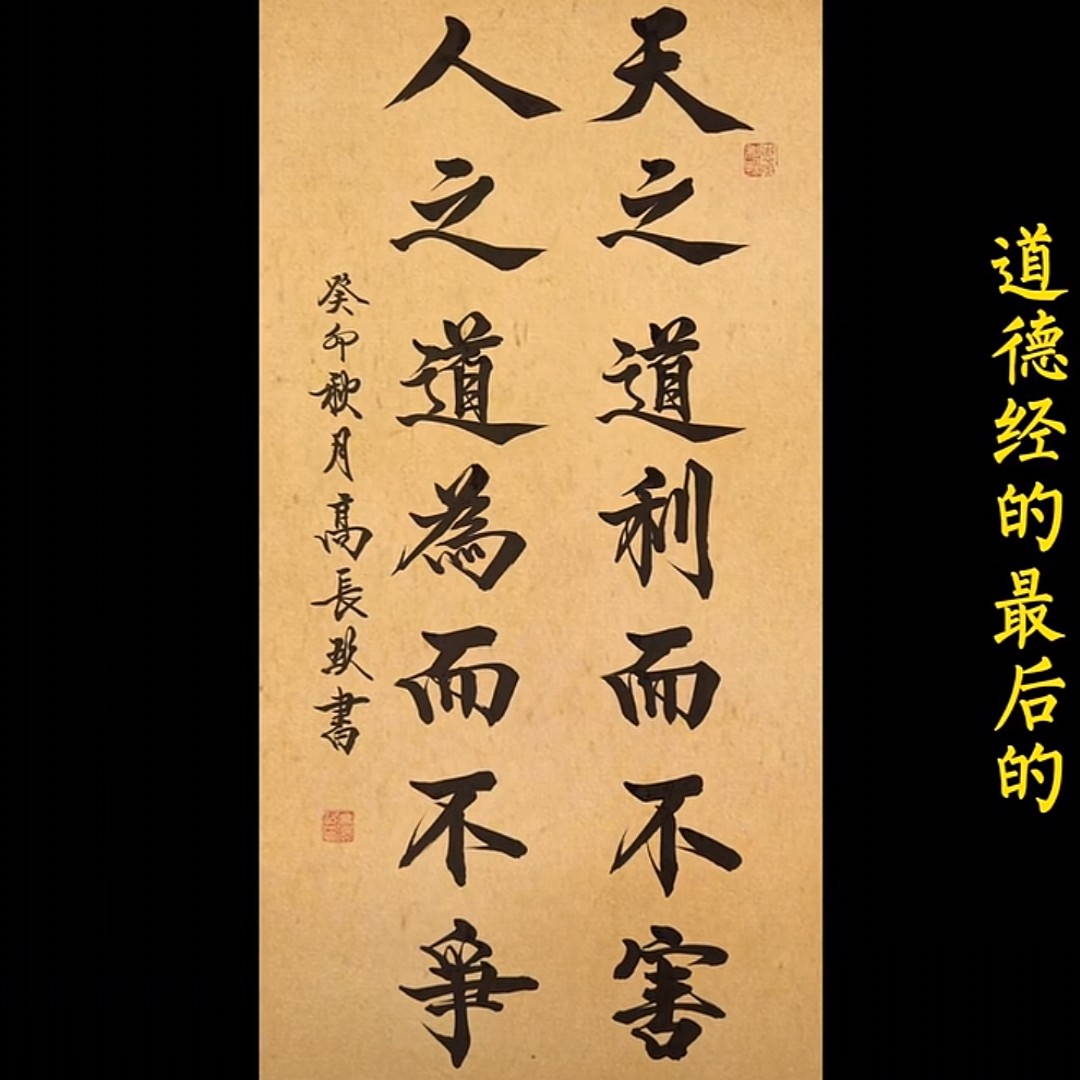 天之道利而不害
人之道為而不爭
癸卯秋月高長玖書
道德经的最后的